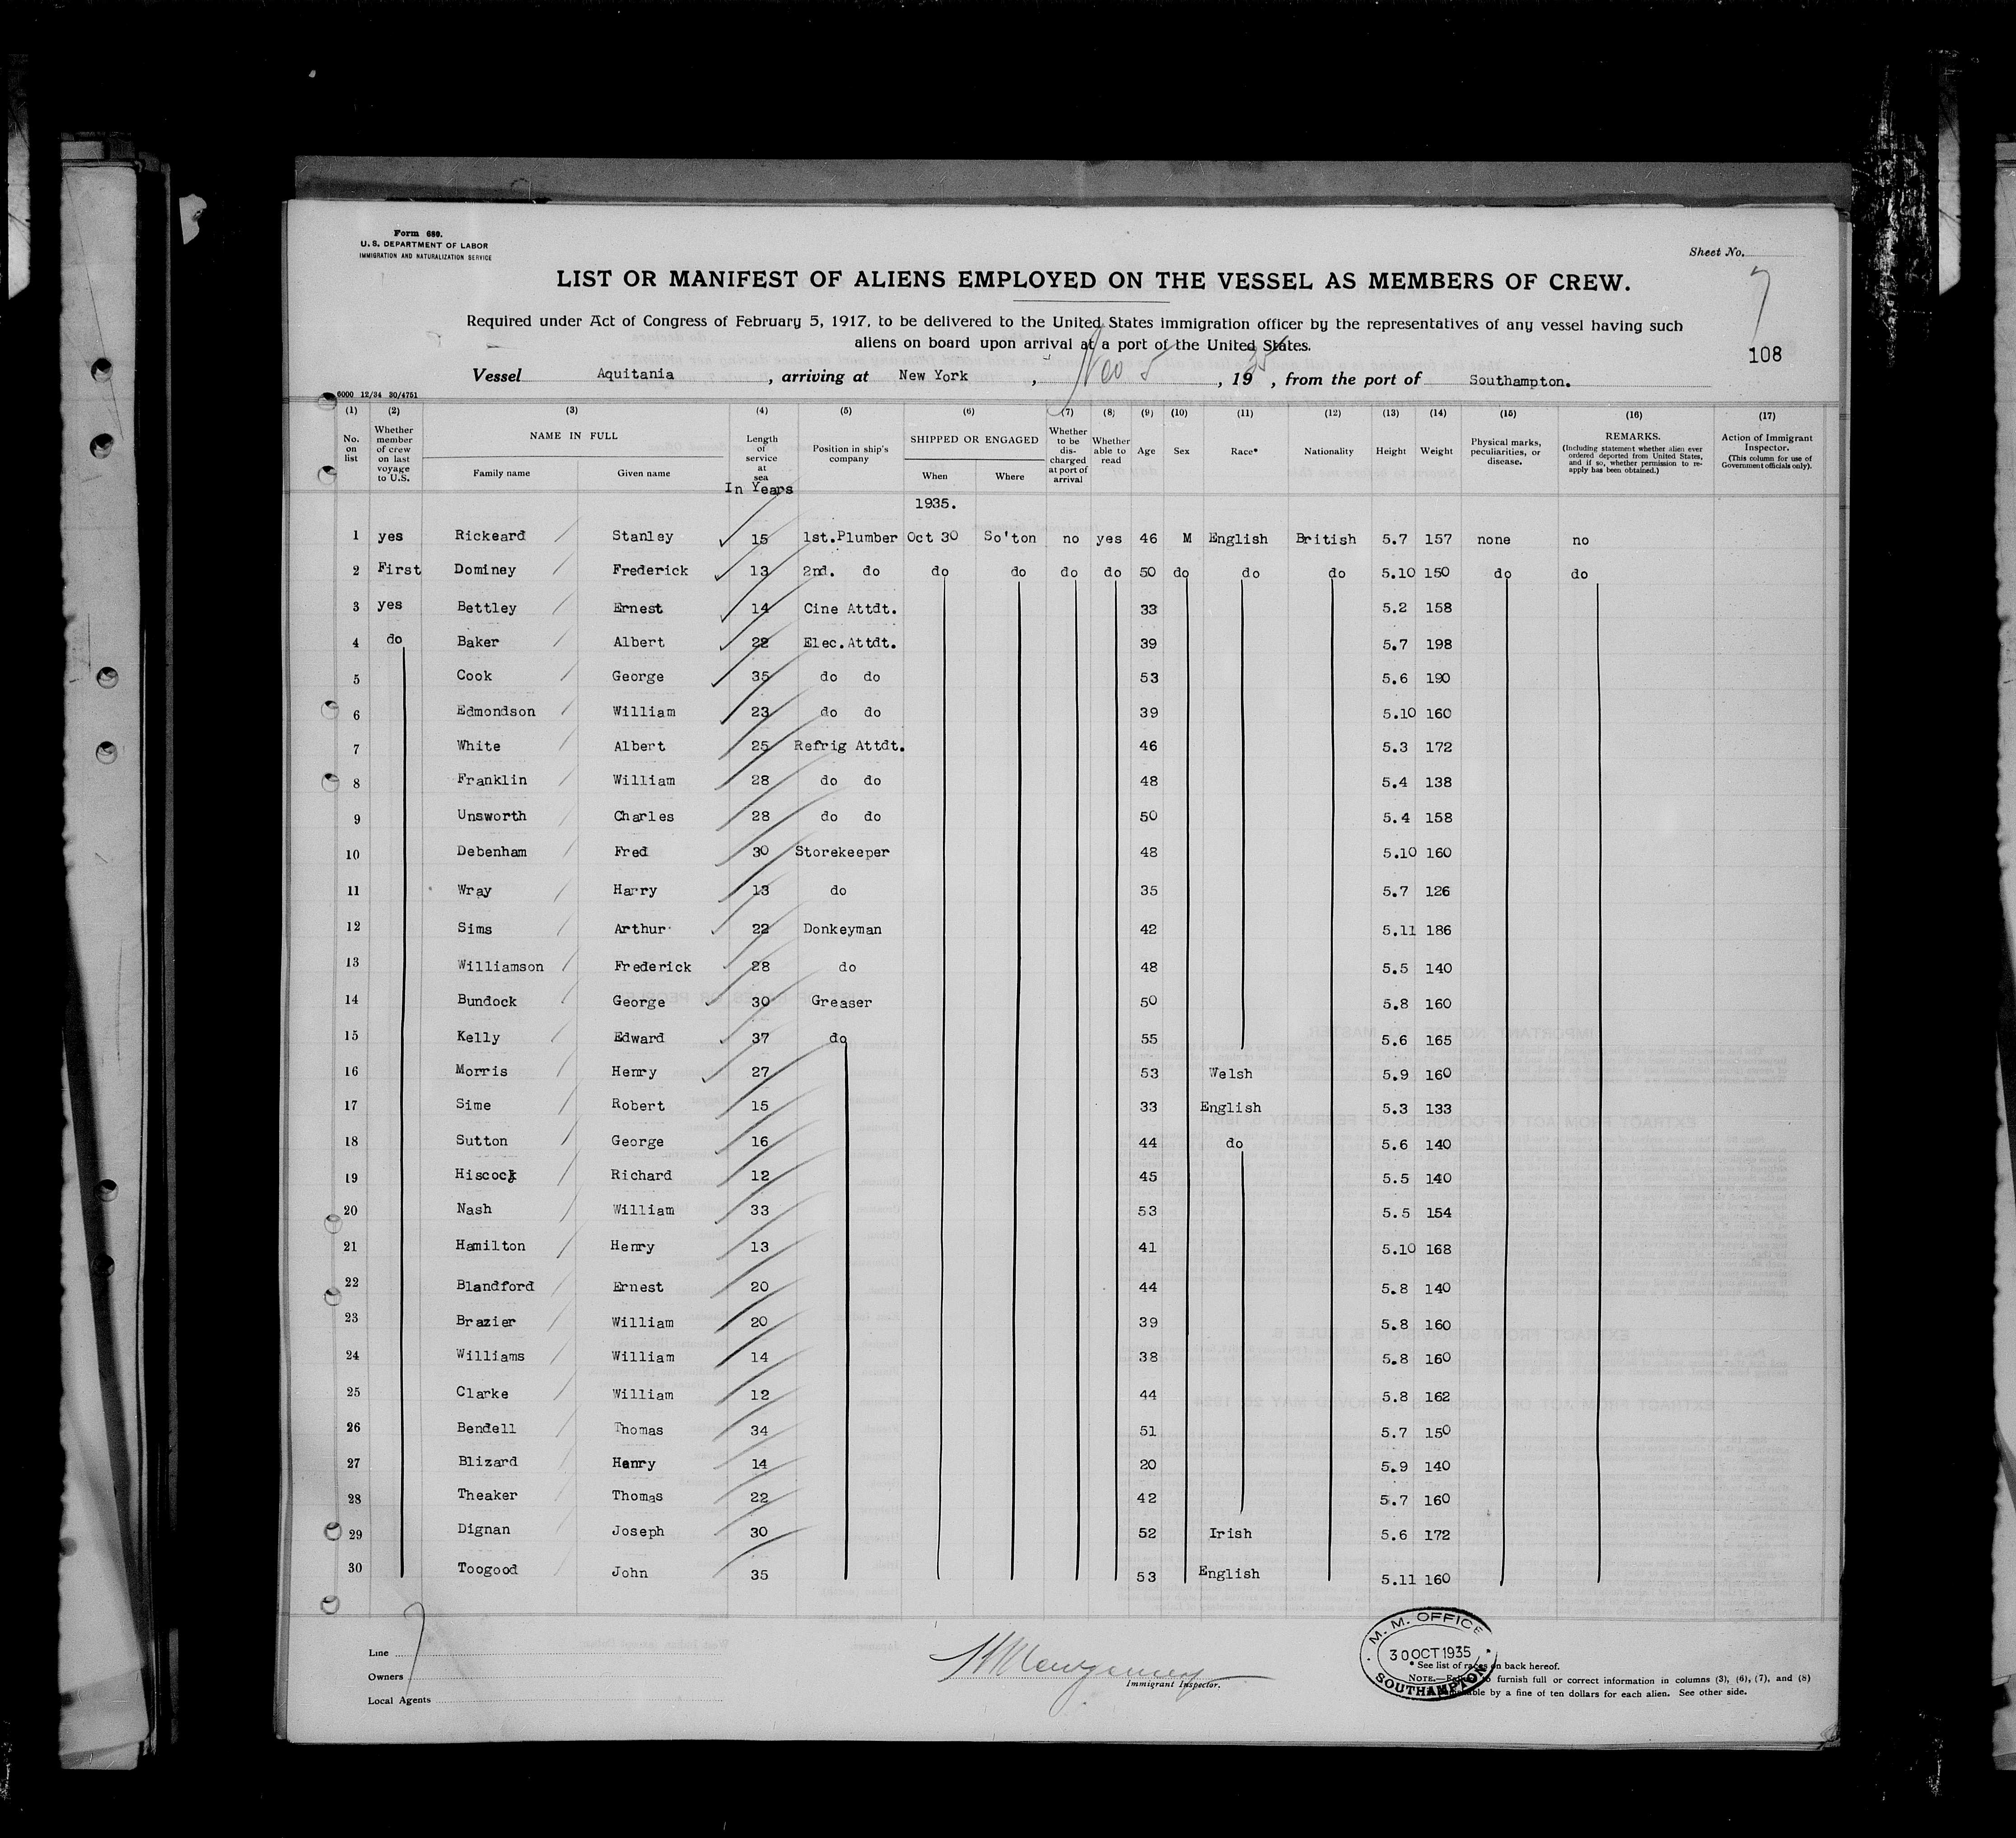 Form 689.
U. S. DEPARTMENT OF LABOR
IMMIGRATION AND NATURALIZATION SERVICE
Sheet No. 7
LIST OR MANIFEST OF ALIENS EMPLOYED ON THE VESSEL AS MEMBERS OF CREW.
Required under Act of Congress of February 5, 1917, to be delivered to the United States immigration officer by the representatives of any vessel having such
aliens on board upon arrival at a port of the United States.
108
Vessel Aquitania, arriving at New York, Nov 5, 1935, from the port of Southampton.
6000 12/34 30/4751
(1) (2) (3) (4) (5) (6) (7) (8) (9) (10) (11) (12) (13) (14) (15) (16) (17)
No. on list
Whether member of crew on last voyage to U.S.
NAME IN FULL
Family name Given name
Length of service at sea
In Years
Position in ship's company
SHIPPED OR ENGAGED
When Where
Whether to be discharged at port of arrival
Whether able to read
Age
Sex
Race*
Nationality
Height
Weight
Physical marks, peculiarities, or disease.
REMARKS.
(Including statement whether alien ever ordered deported from United States, and if so, whether permission to reapply has been obtained.)
Action of Immigrant Inspector.
(This column for use of Government officials only).
1935.
1 yes Rickeard Stanley 15 1st.Plumber Oct 30 So'ton no yes 46 M English British 5.7 157 none no
2 First Dominey Frederick 13 2nd. do do do do do 50 do do do 5.10 150 do do
3 yes Bettley Ernest 14 Cine Attdt. 33 5.2 158
4 do Baker Albert 22 Elec.Attdt. 39 5.7 198
5 Cook George 35 do do 53 5.6 190
6 Edmondson William 23 do do 39 5.10 160
7 White Albert 25 Refrig Attdt. 46 5.3 172
8 Franklin William 28 do do 48 5.4 138
9 Unsworth Charles 28 do do 50 5.4 158
10 Debenham Fred 30 Storekeeper 48 5.10 160
11 Wray Harry 13 do 35 5.7 126
12 Sims Arthur 22 Donkeyman 42 5.11 186
13 Williamson Frederick 28 do 48 5.5 140
14 Bundock George 30 Greaser 50 5.8 160
15 Kelly Edward 37 do 55 5.6 165
16 Morris Henry 27 53 Welsh 5.9 160
17 Sime Robert 15 33 English 5.3 133
18 Sutton George 16 44 do 5.6 140
19 Hiscock Richard 12 45 5.5 140
20 Nash William 33 53 5.5 154
21 Hamilton Henry 13 41 5.10 168
22 Blandford Ernest 20 44 5.8 140
23 Brazier William 20 39 5.8 160
24 Williams William 14 38 5.8 160
25 Clarke William 12 44 5.8 162
26 Bendell Thomas 34 51 5.7 150
27 Blizard Henry 14 20 5.9 140
28 Theaker Thomas 22 42 5.7 160
29 Dignan Joseph 30 52 Irish 5.6 172
30 Toogood John 35 53 English 5.11 160
Line
Owners
Local Agents
Immigrant Inspector.
M. M. OFFICE
30 OCT 1935
SOUTHAMPTON
* See list of races on back hereof.
NOTE.— to furnish full or correct information in columns (3), (6), (7), and (8)
by a fine of ten dollars for each alien. See other side.